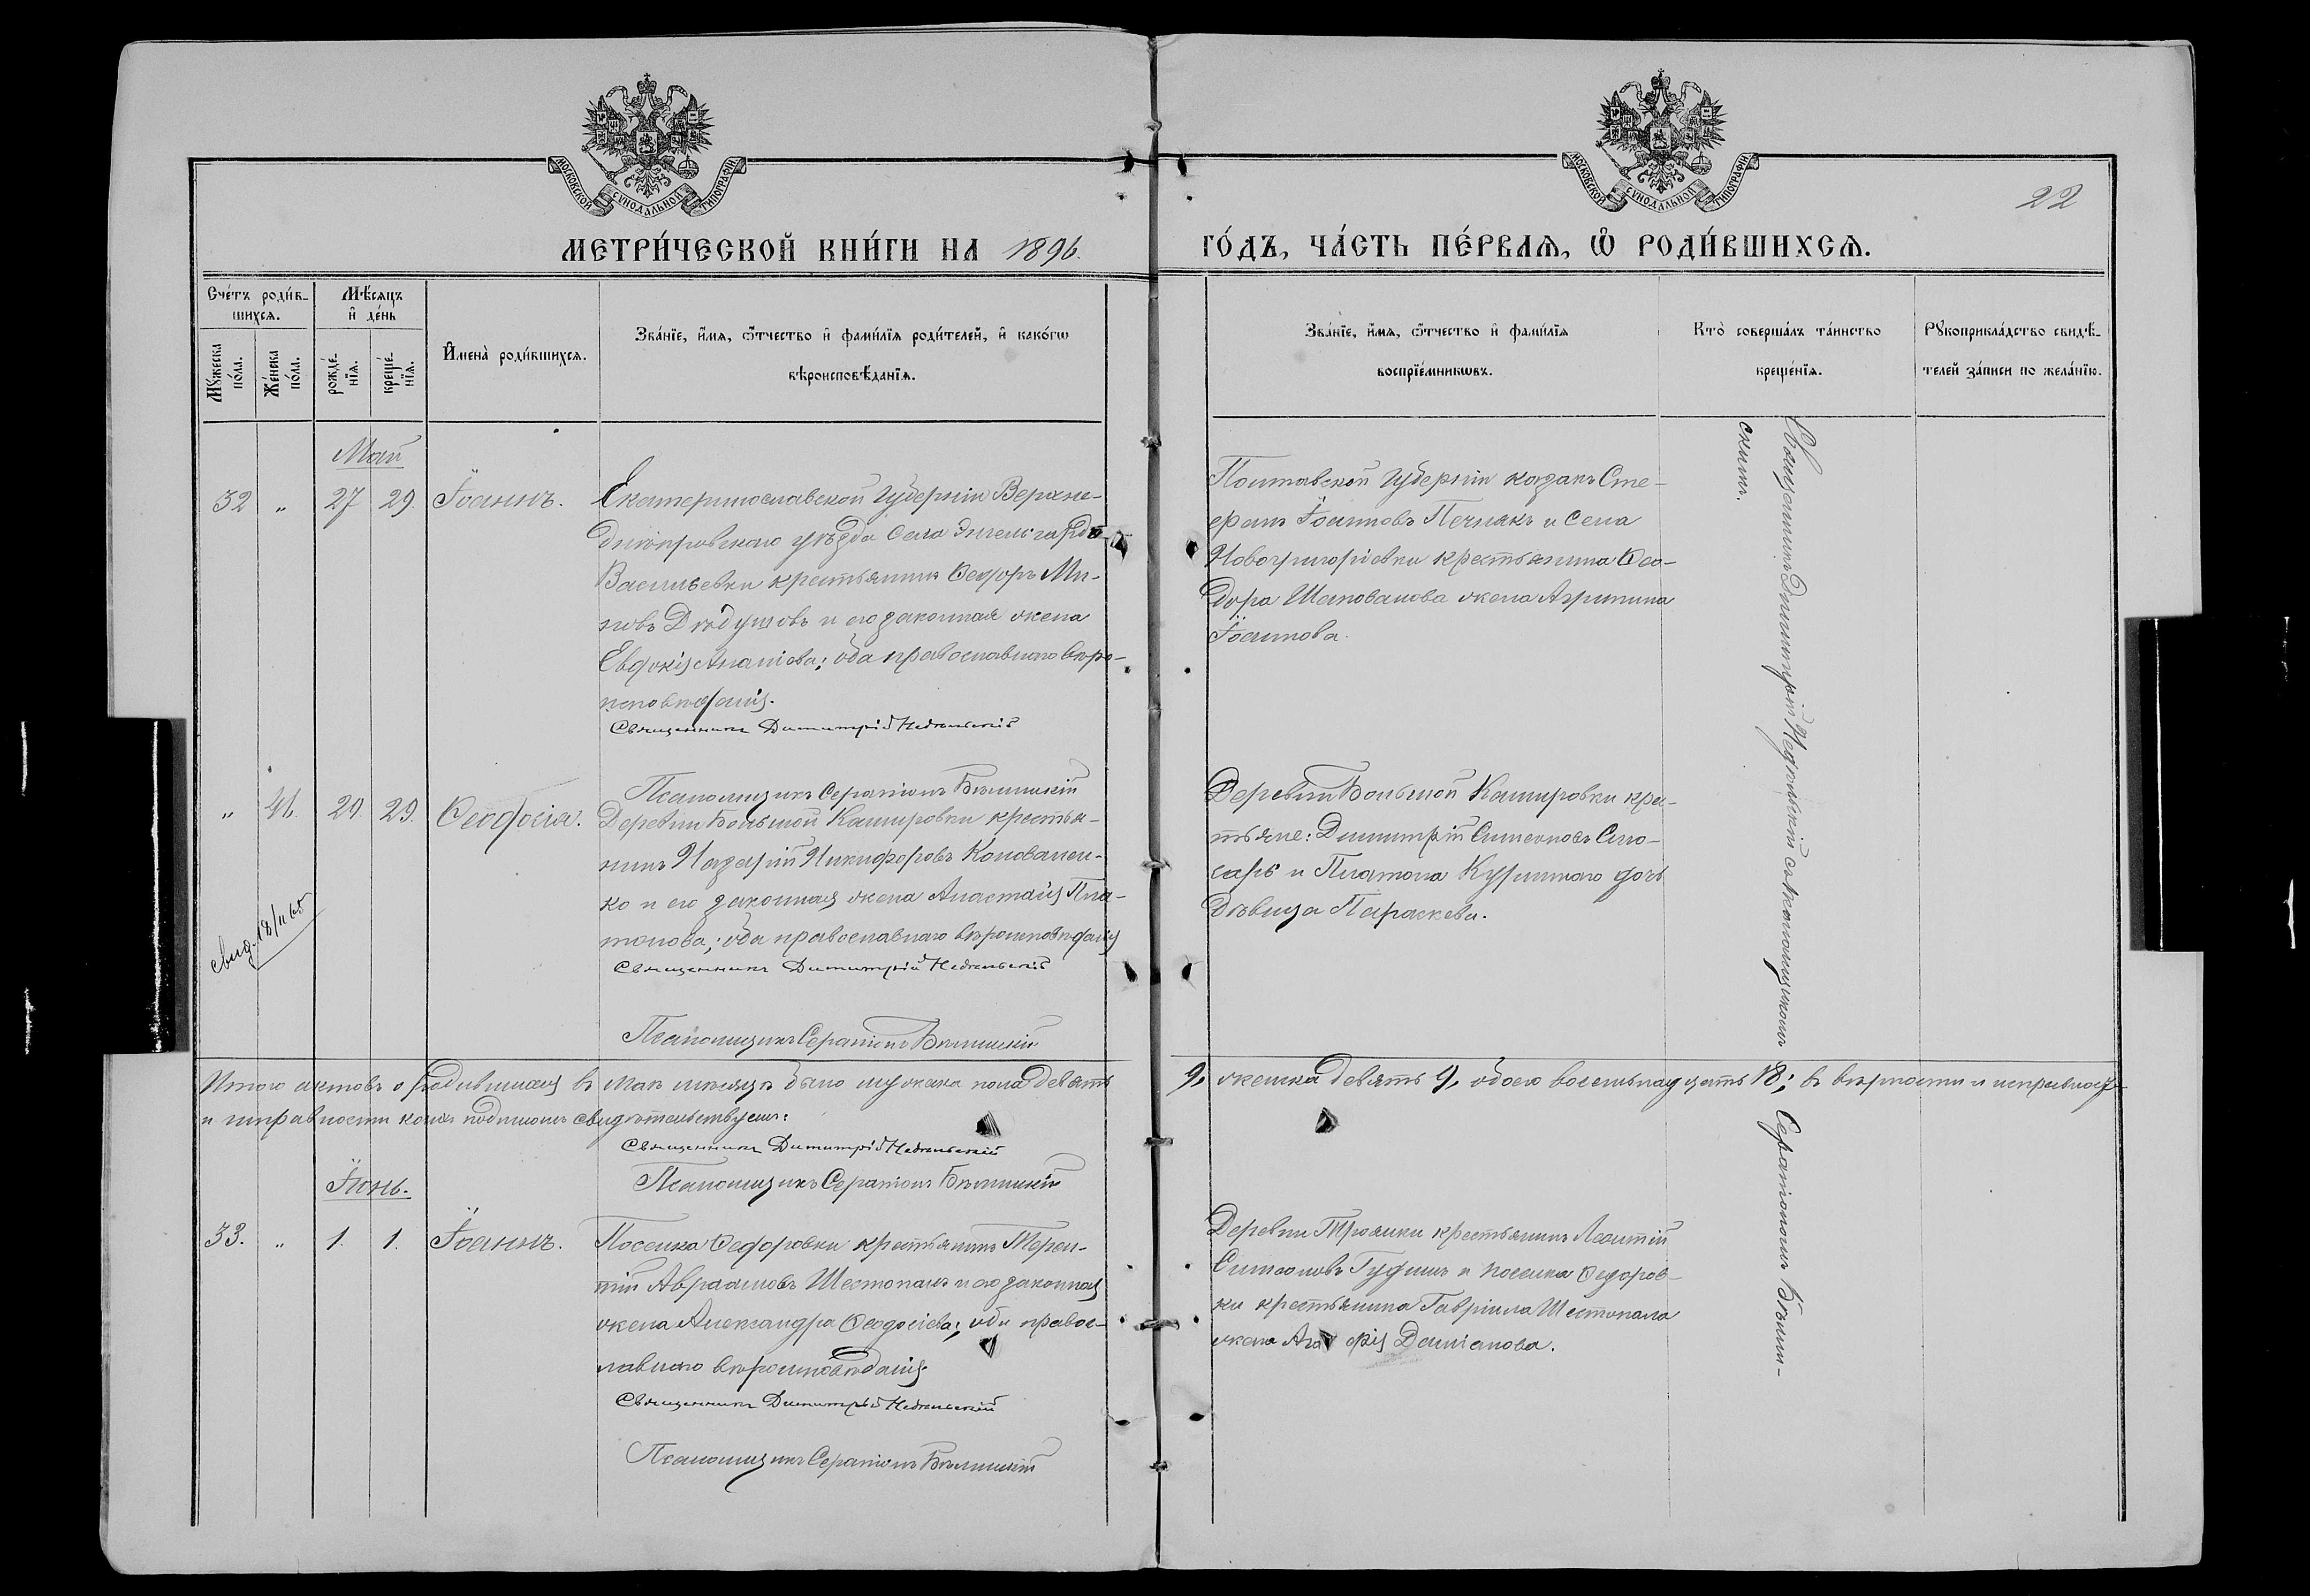 МОСКОВСКОЙ СѴНОДАЛЬНОЙ ТИПОГРАФІИ
МОСКОВСКОЙ СѴНОДАЛЬНОЙ ТИПОГРАФІИ
22
МЕТРИ́ЧЕСКОЙ КНИ́ГИ НА 1896.
ГО́ДЪ, ЧА́СТЬ ПЕ́РВАЯ, Ѡ РОДИ́ВШИХСЯ.
Сче́тъ роди́в-
шихся.
Мѣ́сяцъ
и де́нь
Мꙋжеска
по́ла.
Же́нска
по́ла.
рожде́-
нїя.
креще́-
нїя.
Имена̀ роди́вшихся.
Зва́нїе, и́мя, ѻ҆́тчество и фами́лїя роди́телей, и како́гѡ
вѣроисповѣ́данїя.
Зва́нїе, и́мя, ѻ҆́тчество и фами́лїя
воспрїе́мникѡвъ.
Кто̀ соверша́лъ та́инство
креще́нїя.
Рꙋкоприкла́дство свидѣ́-
телей за́писи по жела́нїю.
Май
32 „ 27 29. Іоаннъ.
Екатеринославской Губерніи Верхне-
днѣпровскаго уѣзда Села Энгельгардо-
Васильевки крестьянинъ Ѳеодоръ Ми-
новъ и его законная жена
Евдокія Ананіева; оба православнаго вѣро-
исповѣданія.
Священникъ Димитрій Недѣльскій
Псаломщикъ Серапіонъ Бѣлинскій
Полтавской Губерніи козакъ Сте-
фанъ Іоанновъ Печнякъ и Села
Новогригоріевки крестьянина Ѳео-
дора Шаповалова жена Агрипина
Іоаннова.
Священникъ Димитрій Недѣльскій съ псаломщикомъ Серапіономъ Бѣлин-
скимъ.
„ 41. 29. 29. Ѳеодосія.
Деревни Большой Кашировки крестья-
нинъ Назарій Никифоровъ Коновален-
ко и его законная жена Анастасія Пла-
тонова; оба православнаго вѣроисповѣданія
Священникъ Димитрій Недѣльскій
Псаломщикъ Серапіонъ Бѣлинскій
Деревни Большой Кашировки крес-
тьяне: Димитрій Симеоновъ Слю-
сарь и Платона дочь
дѣвица Параскева.
свид. 18/II 65
Итого актовъ о родившихся въ Маѣ мѣсяцѣ было мужеска пола девять
9, женска девять 9, обоего восемнадцать 18; въ вѣрности
и исправности коихъ подписомъ свидѣтельствуемъ:
Священникъ Димитрій Недѣльскій
Псаломщикъ Серапіонъ Бѣлинскій
Іюнь.
33. „ 1. 1. Іоаннъ.
Поселка Ѳедоровки крестьянинъ Терен-
тій Авраамовъ Шестопалъ и его законная
жена Александра Ѳеодосіева; оба правос-
лавнаго вѣроисповѣданія
Священникъ Димитрій Недѣльскій
Псаломщикъ Серапіонъ Бѣлинскій
Деревни Трояники крестьянинъ Леонтій
Симеоновъ и поселка Ѳедоров-
ки крестьянина Гавріила Шестопала
жена Агафія Даміанова.